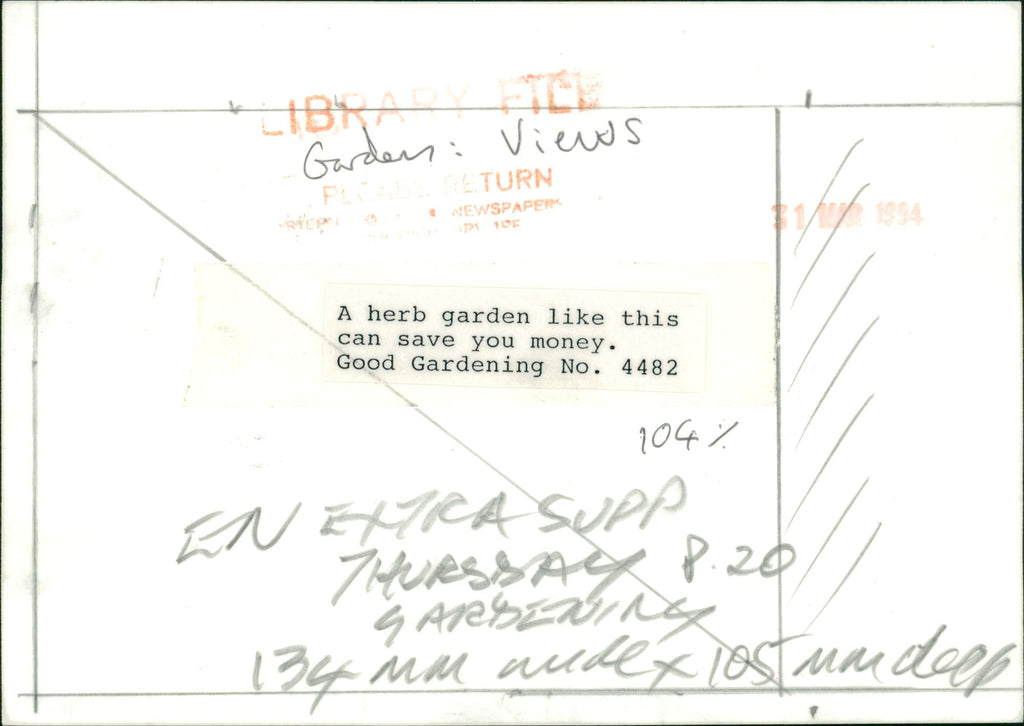 LIBRARY FILE
Gardens: Views
PLEASE RETURN
NEWSPAPERS
31 MAR 1994
A herb garden like this
can save you money.
Good Gardening No. 4482
104%
EN EXTRA SUPP
THURSDAY P.20
GARDENING
134 mm wide x 105 mm deep